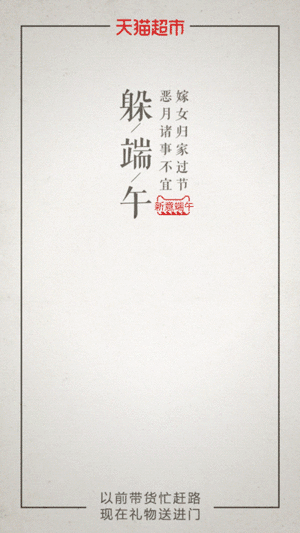 天猫超市
躲/端/午
嫁女归家过节
恶月诸事不宜
新意端午
以前带货忙赶路
现在礼物送进门